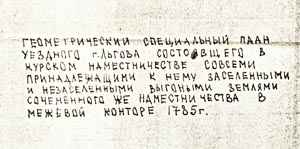 ГЕОМЕТРИЧЕСКИЙ СПЕЦИАЛЬНЫЙ ПЛАН
УЕЗДНОГО Г. ЛЬГОВА СОСТОЯЩЕГО В
КУРСКОМ НАМЕСТНИЧЕСТВЕ СОВСЕМИ
ПРИНАДЛЕЖАЩИМИ К НЕМУ ЗАСЕЛЕННЫМИ
И НЕЗАСЕЛЕННЫМИ ВЫГОНЫМИ ЗЕМЛЯМИ
СОЧЕНЕННОГО ЖЕ НАМЕСТНИЧЕСТВА В
МЕЖЕВОЙ КОНТОРЕ 1785г.